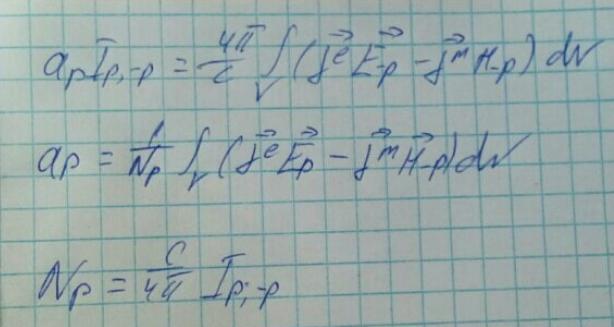 aₚIₚ,₋ₚ = 4π/c ∫ᵥ (j⃗ᵉ E⃗₋ₚ − j⃗ᵐ H₋ₚ) dv
aₚ = 1/Nₚ ∫ᵥ (j⃗ᵉ E⃗ₚ − j⃗ᵐ H⃗₋ₚ) dv
Nₚ = c/4π Iₚ,₋ₚ